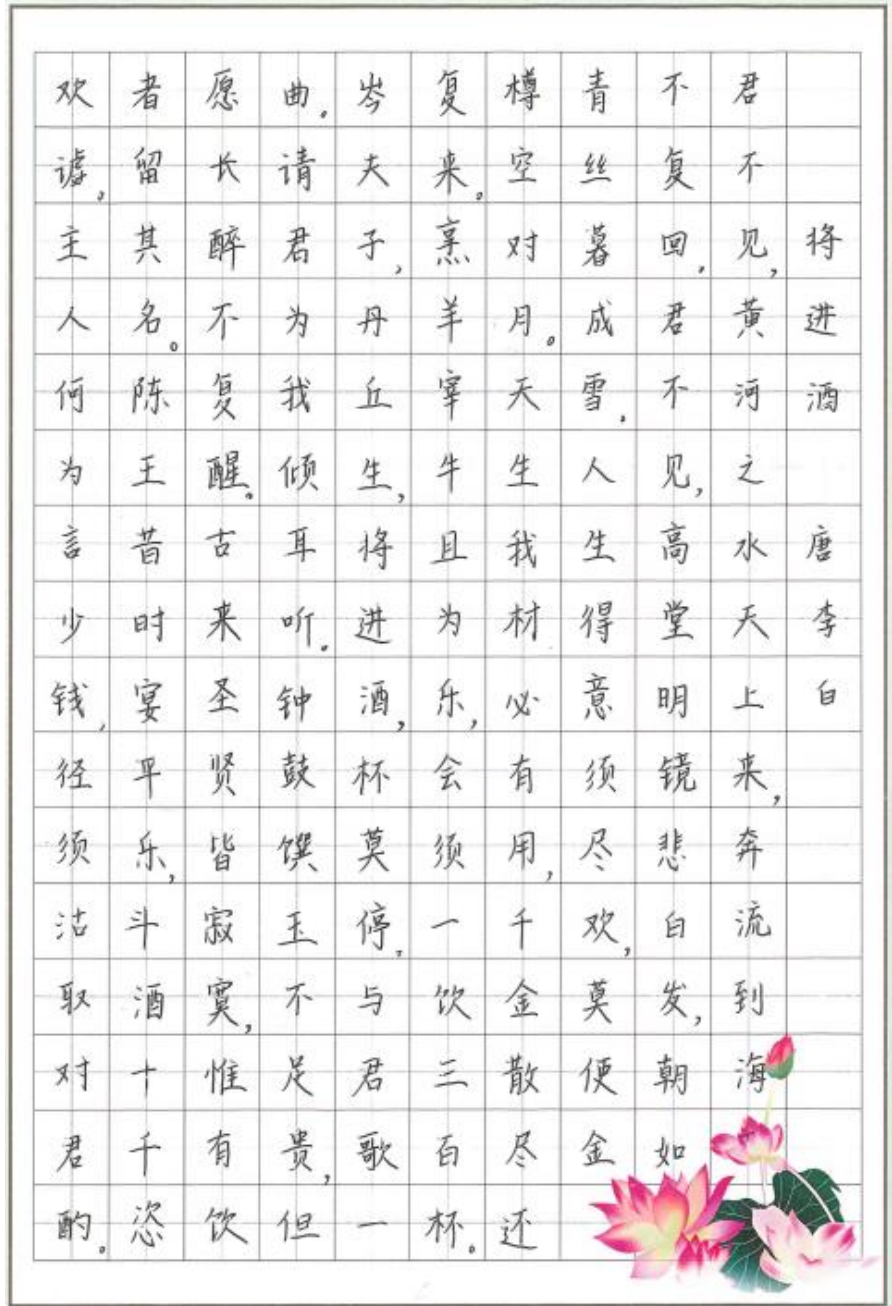 将进酒 唐李白
君不见,黄河之水天上来,奔流到海
不复回,君不见,高堂明镜悲白发,朝如
青丝暮成雪。人生得意须尽欢,莫便金
樽空对月。天生我材必有用,千金散尽还
复来。烹羊宰牛且为乐,会须一饮三百杯。
岑夫子,丹丘生,将进酒,杯莫停。与君歌一
曲。请君为我倾耳听。钟鼓馔玉不足贵,但
愿长醉不复醒。古来圣贤皆寂寞,惟有饮
者留其名。陈王昔时宴平乐,斗酒十千恣
欢谑。主人何为言少钱,径须沽取对君酌。